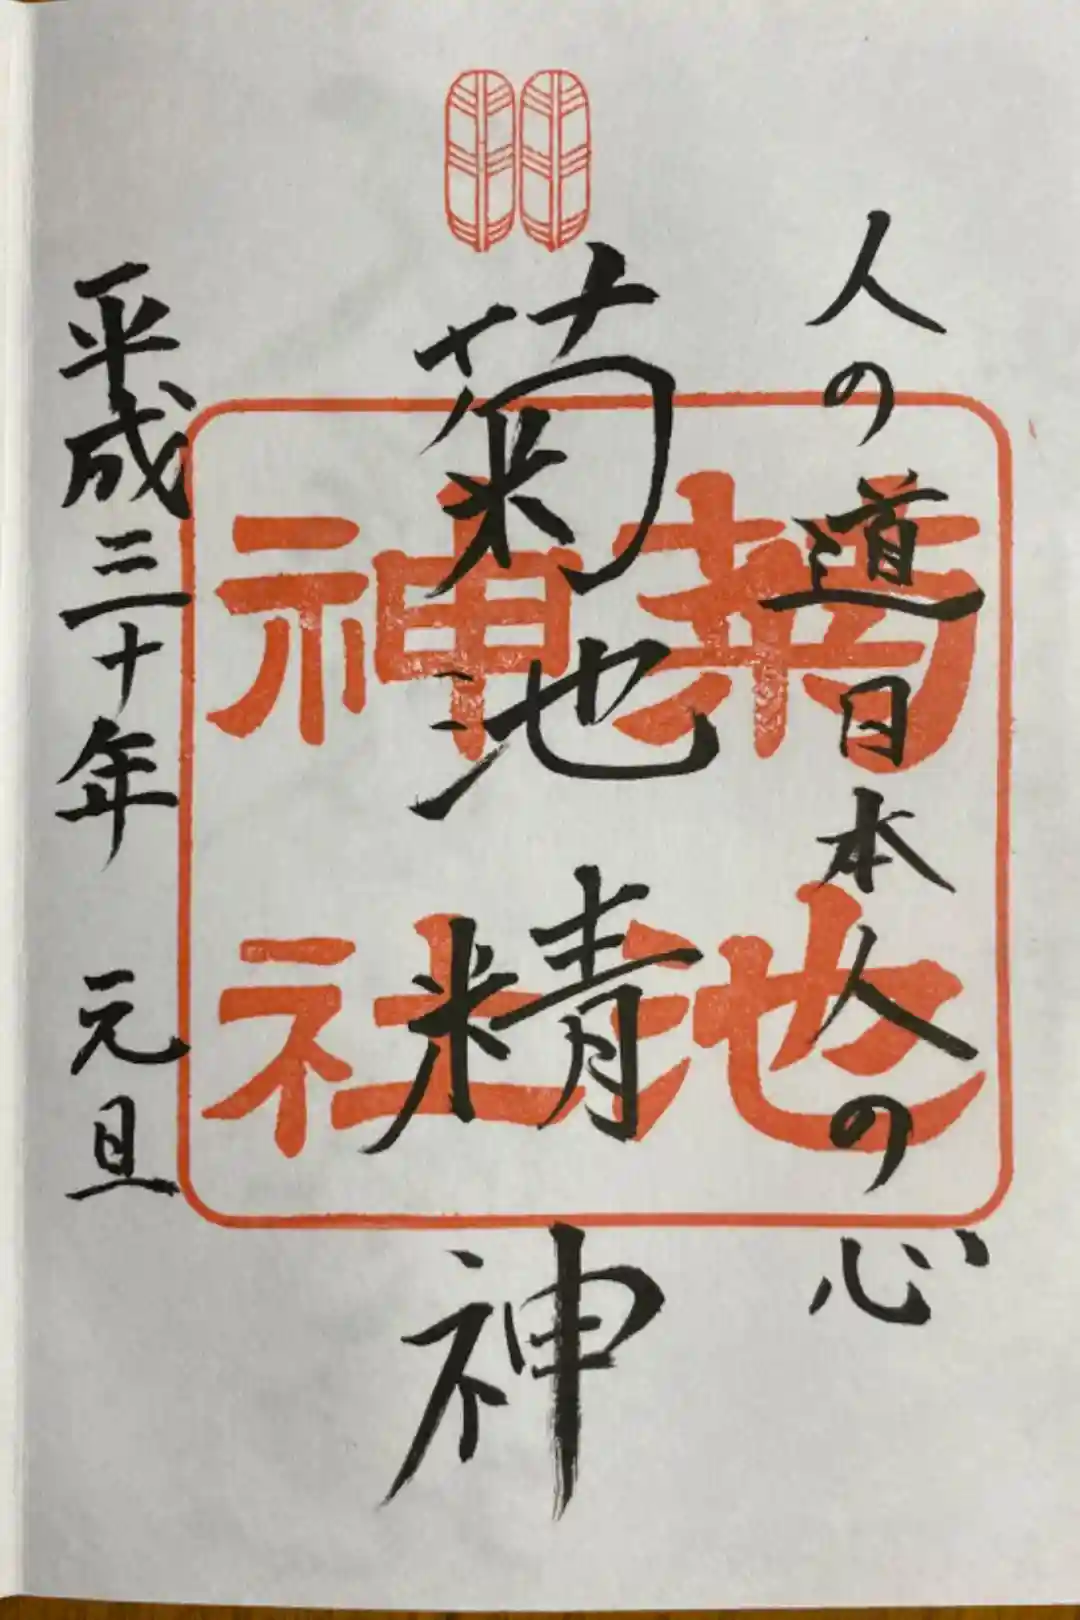 人の道日本人の心
菊池精神
平成三十年 元旦
菊池
神社